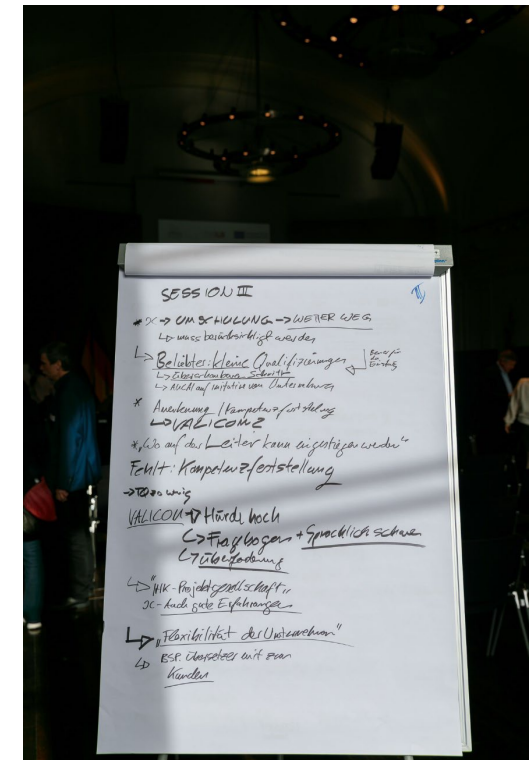 SESSION III
III
* JC → UMSCHULUNG → WEITER WEG
↳ muss berücksichtigt werden
↳ Beliebter: kleine Qualifizierungen
↳ Überschaubare Schritte
↳ AUCH auf initiative von Unternehmen
Besser für
Einstieg
* Anerkennung / Kompetenzfeststellung
↳ VALICOM 2
* „Wo auf der Leiter kann eingestiegen werden“
Fehlt: Kompetenzfeststellung
→ TQ zu wenig
VALICOM → Hürde hoch
↳ Fragebogen + Sprachlich schwer
↳ Überforderung
↳ „IHK-Projektgesellschaft“
JC - Auch gute Erfahrungen
↳ „Flexibilität der Unternehmen“
↳ BSP. Übersetzer mit zum
Kunden